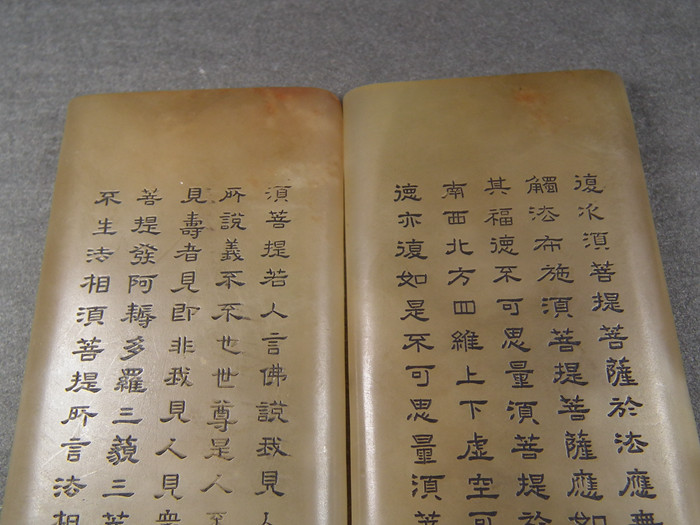 復次須菩提菩薩於法應無
觸法布施須菩提菩薩應如
其福德不可思量須菩提於
南西北方四維上下虛空可
德亦復如是不可思量須菩
須菩提若人言佛說我見人
所說義不不也世尊是人
見壽者見即非我見人見眾
菩提發阿耨多羅三藐三菩
不生法相須菩提所言法相